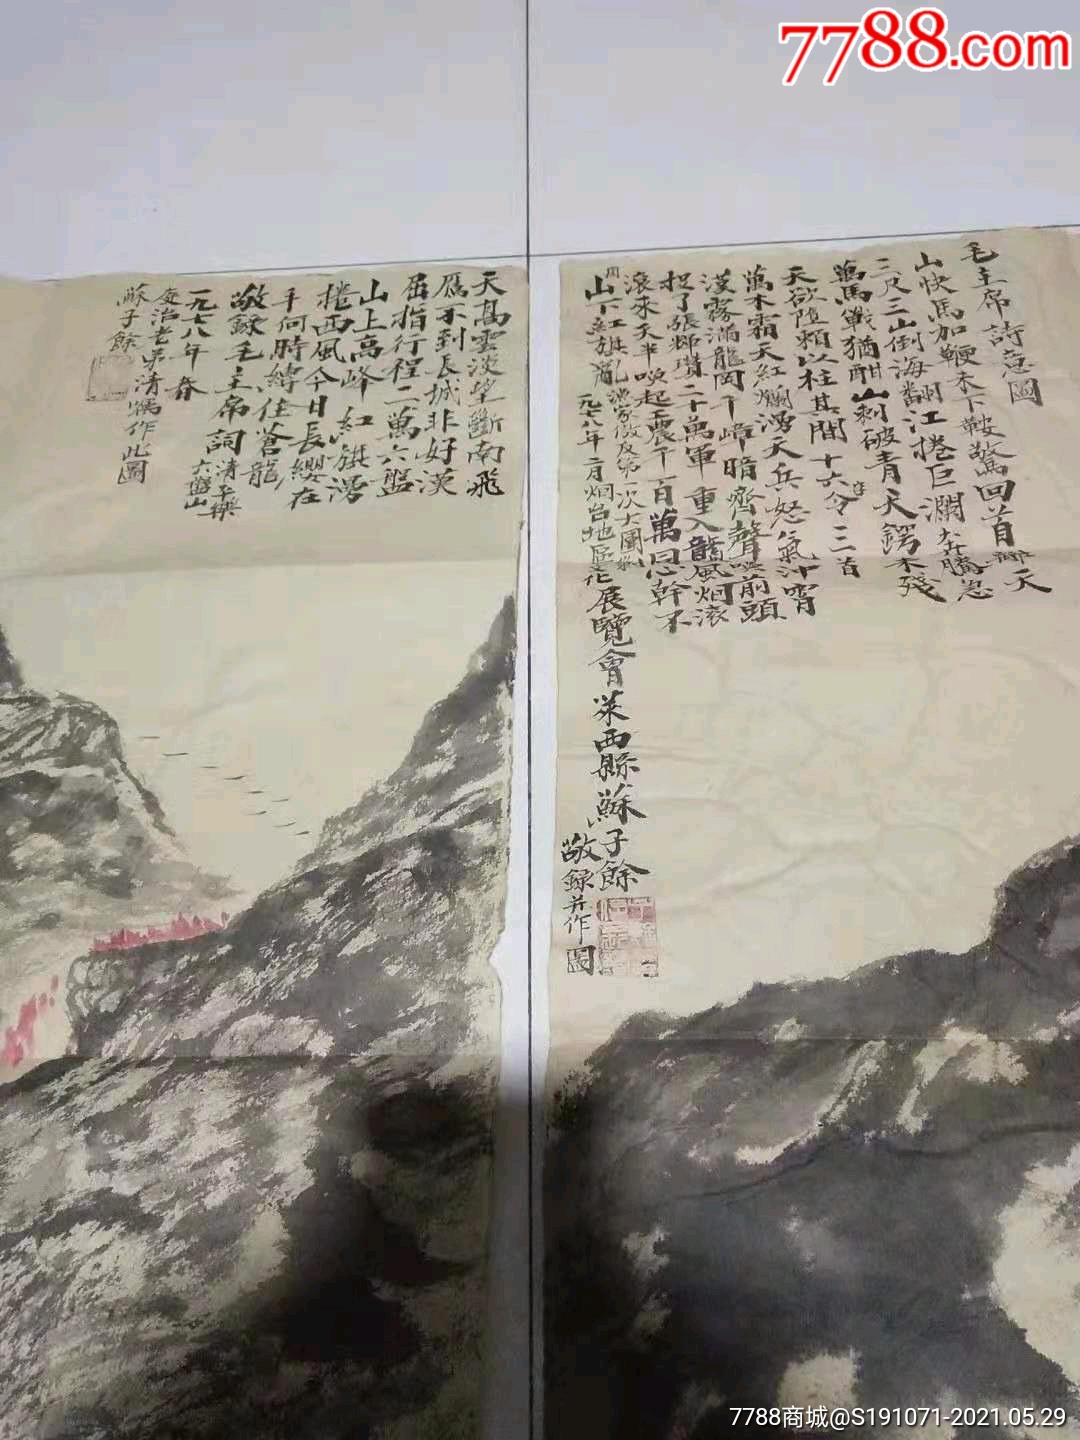 7788.com
毛主席詩意圖
山快馬加鞭未下鞍驚回首離天
三尺三山倒海翻江捲巨瀾奔騰急
萬馬戰猶酣山刺破青天鍔未殘
天欲墮賴以柱其間十六字令三首
萬木霜天紅爛湧天兵怒氣沖霄
漢霧滿龍岡千嶂暗齊聲喚前頭
捉了張輝瓚二十萬軍重入贛風烟滾
滾來天半喚起工農千百萬同心幹不
周山下紅旗亂漁家傲反第一次大圍剿
一九七八年二月烟台地區化展覽會萊西縣蘇子餘
敬録并作圖
天高雲淡望斷南飛
雁不到長城非好漢
屈指行程二萬六盤
山上高峰紅旗湧
捲西風今日長纓在
手何時縛住蒼龍
敬録毛主席詞清平樂
六盤山
一九八八年春
蘇子餘
7788商城@S191071-2021.05.29